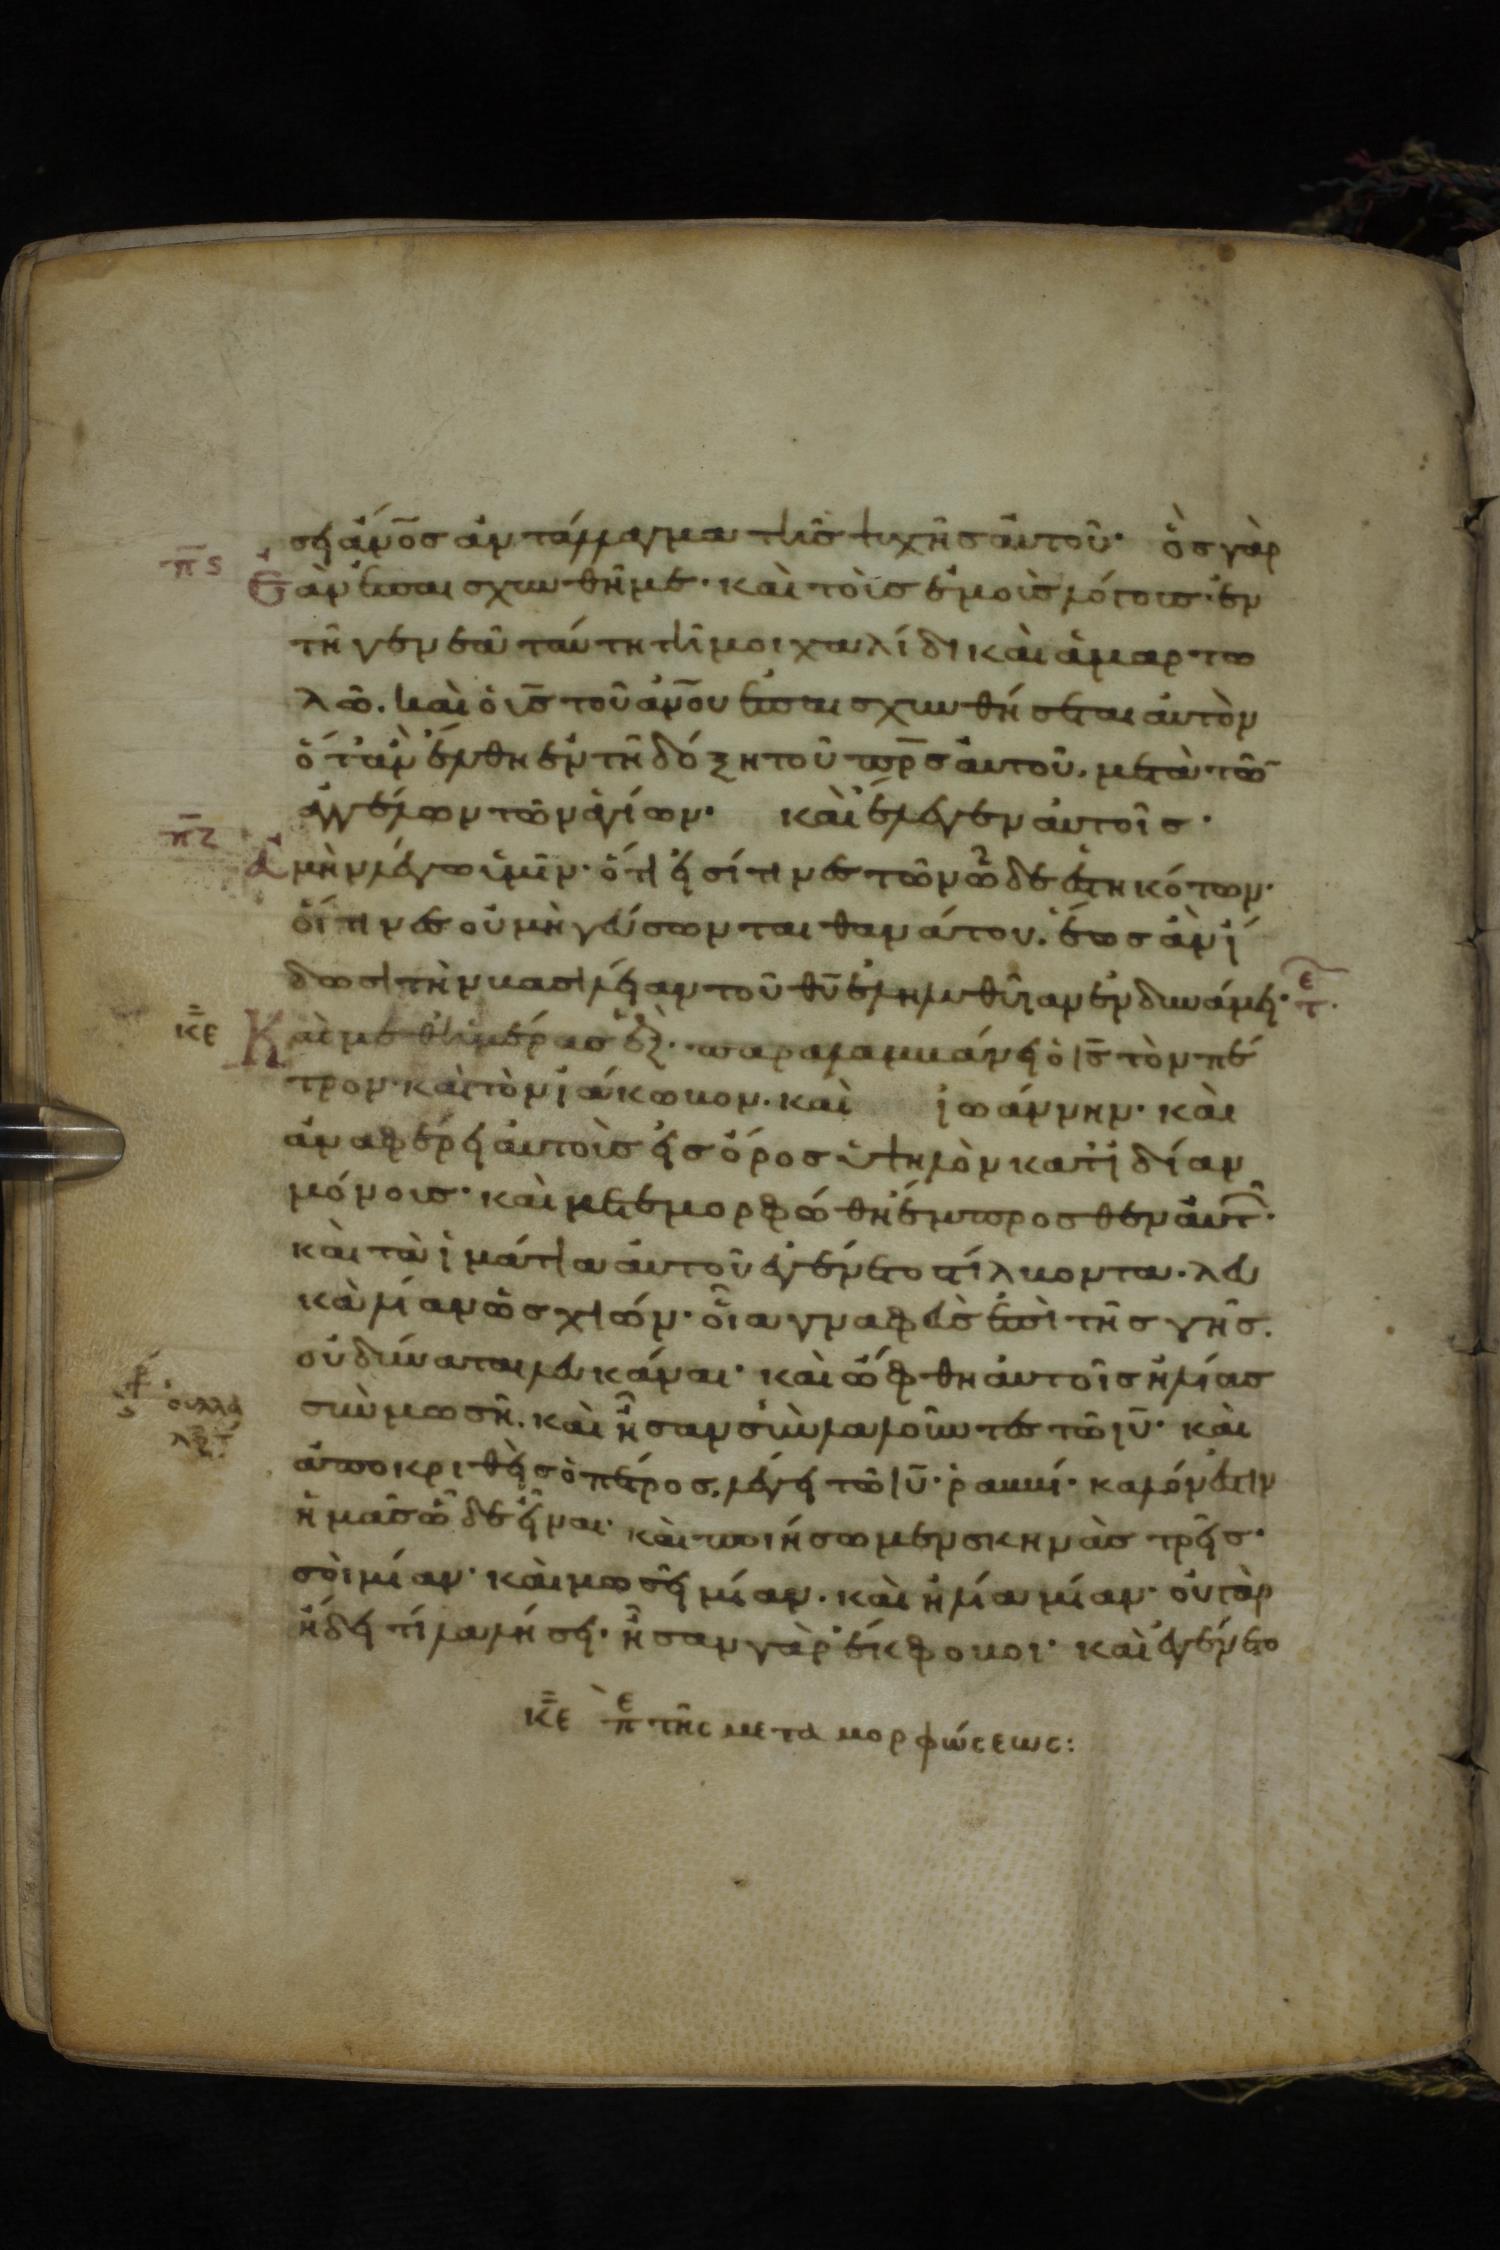 σει ἄν̅ο̅ς ἀντάλλαγμα τῆς ψυχῆς αὐτοῦ· ὃς γὰρ
π̅ς ἐὰν ἐπαισχυνθῆ με· καὶ τοὺς ἐμοὺς λόγους· ἐν
τῆ γενεᾶ ταύτη τῆ μοιχαλίδι καὶ ἁμαρτω
λῶ. καὶ ὁ υ̅ς τοῦ ἀν̅ο̅υ ἐπαισχυνθήσεται αὐτὸν
ὅταν ἔλθη ἐν τῆ δόξη τοῦ π̅ρ̅ς αὐτοῦ. μετὰ τῶ̅
ἀγγέλων τῶν ἁγίων· καὶ ἔλεγεν αὐτοῖς·
π̅ζ ἀμὴν λέγω ὑμῖν· ὅτι εἰσί τινες τῶν ὧδε ἑστηκότων·
οἵτινες οὐ μὴ γεύσωνται θανάτου. ἕως ἂν ἴ
δωσι τὴν βασιλείαν τοῦ θ̅υ̅ ἐληλυθυῖαν ἐν δυνάμει· τε
κ̅ε Καὶ μεθ' ἡμέρας ἓξ· παραλαμβάνει ὁ ι̅ς̅ τὸν πέ
τρον· καὶ τὸν ἰάκωβον. καὶ ἰωάννην· καὶ
ἀναφέρει αὐτοὺς εἰς ὄρος ὑψηλὸν κατ' ἰδίαν
μόνους· καὶ μετεμορφώθη ἔμπροσθεν αὐτ·
καὶ τὰ ἱμάτια αὐτοῦ ἐγένετο στίλβοντα. λευ
κὰ λίαν ὡς χιών· οἷα γναφεὺς ἐπὶ τῆς γῆς.
οὐ δύναται λευκάναι· καὶ ὤφθη αὐτοῖς ἡλίας
σὺν μωσῆ. καὶ ἦσαν συλλαλοῦντες τῶ ι̅υ̅· καὶ
ἀποκριθεὶς ὁ πέτρος. λέγει τῶ ι̅υ̅· ῥαββί· καλόν ἐστιν
ἡμᾶς ὧδε εἶναι· καὶ ποιήσωμεν σκηνὰς τρεῖς·
σοὶ μίαν· καὶ μωσεῖ μίαν. καὶ ἡλία μίαν· οὐ γὰρ
ἤδει τί λαλήσει· ἦσαν γὰρ ἔκφοβοι· καὶ ἐγένετο
κ̅ε πε τῆς μεταμορφώσεως: